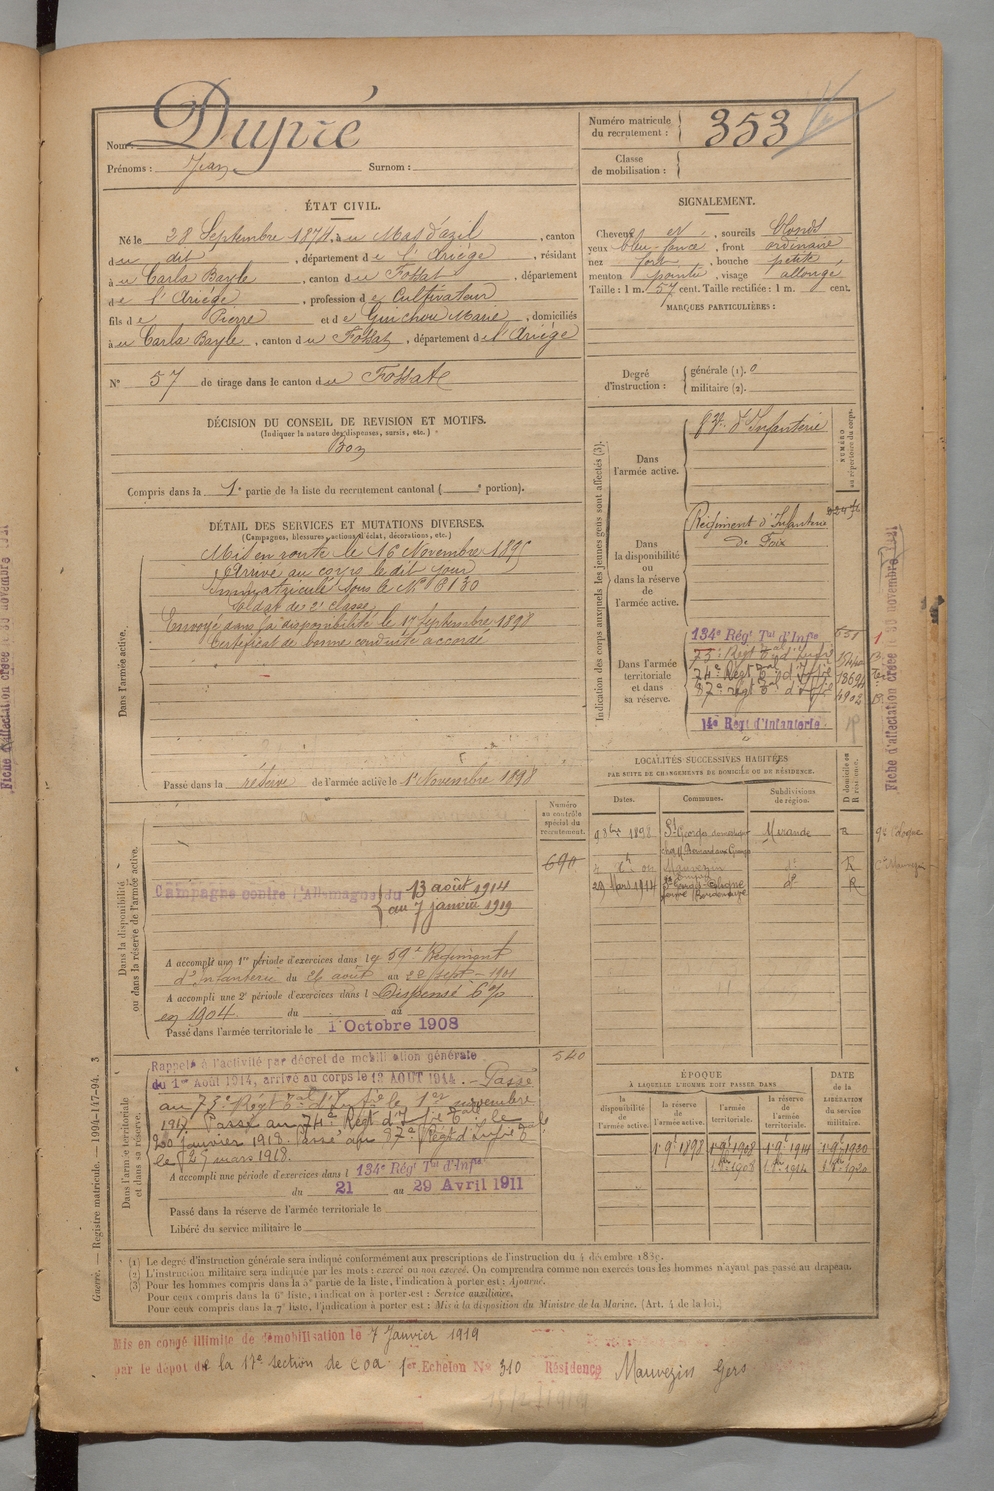 Nom Dupré
Prénoms : Jean Surnom :
Numéro matricule du recrutement : 353
Classe de mobilisation :
ÉTAT CIVIL.
Né le 28 Septembre 1874, à u Mas d'azil, canton
du dit, département de l'Ariège, résidant
à u Carla Bayle, canton du Fossat, département
de l'Ariège, profession de Cultivateur
fils de Pierre et de Guichou Marie, domiciliés
à u Carla Bayle, canton du Fossat, département de l'Ariège
N° 57 de tirage dans le canton du Fossat
DÉCISION DU CONSEIL DE REVISION ET MOTIFS.
(Indiquer la nature des dispenses, sursis, etc.)
Bon
Compris dans la 1e partie de la liste du recrutement cantonal ( e portion).
DÉTAIL DES SERVICES ET MUTATIONS DIVERSES.
(Campagnes, blessures, actions d'éclat, décorations, etc.)
Dans l'armée active.
Mis en route le 16 Novembre 1895
Arrivé au corps le dit jour
Immatriculé sous le N° 8130
Soldat de 2e classe
Envoyé dans la disponibilité le 17 Septembre 1898
Certificat de bonne conduite accordé
Passé dans la réserve de l'armée active le 1er Novembre 1898
Dans la disponibilité ou dans la réserve de l'armée active.
Numéro au contrôle spécial du recrutement.
690
Campagne contre l'Allemagne du 13 août 1914
au 7 janvier 1919
A accompli une 1re période d'exercices dans le 59e Régiment
d'Infanterie du 26 août au 22 Sept 1901
A accompli une 2e période d'exercices dans l Dispensé 6%
en 1904 du au
Passé dans l'armée territoriale le 1er Octobre 1908
540
Dans l'armée territoriale et dans sa réserve.
Rappelé à l'activité par décret de mobilisation générale
du 1er Août 1914, arrivé au corps le 13 AOUT 1914. Passé
au 73e Régt tal d'Infie le 1er novembre
1917. Passé au 74e Régt d'Infie tale le
20 janvier 1918. Passé au 87e Régt d'Infie tale
le 25 mars 1918.
A accompli une période d'exercices dans l 134e Rég Tal d'Infie
du 21 au 29 Avril 1911
Passé dans la réserve de l'armée territoriale le
Libéré du service militaire le
SIGNALEMENT.
Cheveux et, sourcils blonds
yeux bleu-foncé, front ordinaire
nez fort, bouche petite
menton pointu, visage allongé
Taille : 1 m. 57 cent. Taille rectifiée : 1 m. cent.
MARQUES PARTICULIÈRES :
Degré d'instruction : générale (1). 0
militaire (2).
Indication des corps auxquels les jeunes gens sont affectés (3).
NUMÉRO au répertoire du corps.
Dans l'armée active.
d'Infanterie
Dans la disponibilité ou dans la réserve de l'armée active.
Régiment d'Infanterie
de Foix
Dans l'armée territoriale et dans sa réserve.
134e Rég Tal d'Infie
73e Régt tal d'Infie
74e Régt tal d'Infie
87e régt tal d'Infie
14e Régt d'Infanterie
Fiche d'affectation créée
LOCALITÉS SUCCESSIVES HABITÉES
PAR SUITE DE CHANGEMENTS DE DOMICILE OU DE RÉSIDENCE.
Dates. Communes. Subdivisions de région. D domicile ou R résidence.
9 8bre 1898 St Georges domestique Mirande R
Mauvezin do R
29 Mars 1914 do R
ÉPOQUE
À LAQUELLE L'HOMME DOIT PASSER DANS
la disponibilité de l'armée active. la réserve de l'armée active. l'armée territoriale. la réserve de l'armée territoriale.
DATE de la LIBÉRATION du service militaire.
1er 9e 1898 1er 9e 1908 1er 9e 1914 1er 9e 1920
(1) Le degré d'instruction générale sera indiqué conformément aux prescriptions de l'instruction du 4 décembre 1889.
(2) L'instruction militaire sera indiquée par les mots : exercé ou non exercé. On comprendra comme non exercés tous les hommes n'ayant pas passé au drapeau.
(3) Pour les hommes compris dans la 5e partie de la liste, l'indication à porter est : Ajourné.
Pour ceux compris dans la 6e liste, l'indication à porter est : Service auxiliaire.
Pour ceux compris dans la 7e liste, l'indication à porter est : Mis à la disposition du Ministre de la Marine. (Art. 4 de la loi.)
Guerre. — Registre matricule. — 1994-147-94. 3
Mis en congé illimité de démobilisation le 7 Janvier 1919
par le dépôt de la 17e section de coa 1er Echelon No 310 Résidence Mauvezin Gers